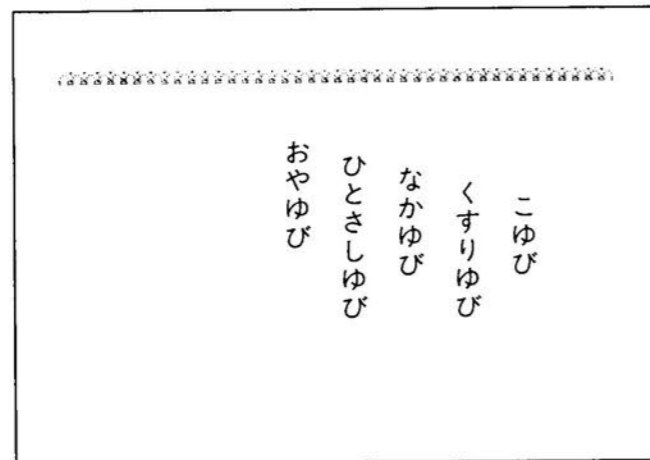 こゆび
くすりゆび
なかゆび
ひとさしゆび
おやゆび